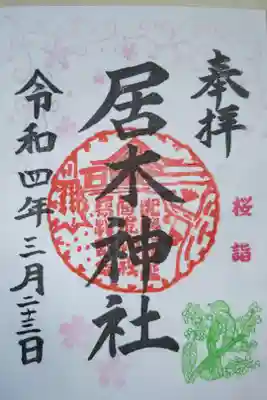 奉拝
桜詣
居木神社
令和四年三月二十三日